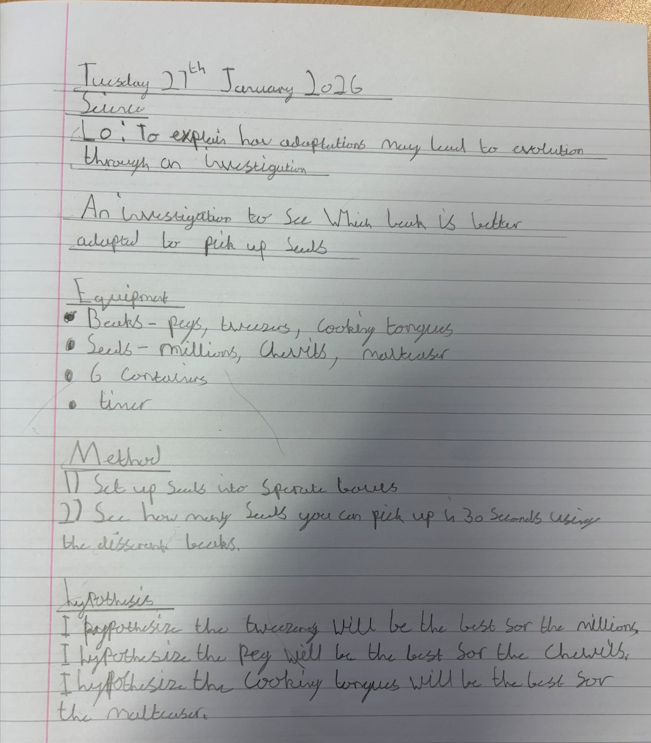 Tuesday 27th January 2026
Science
LO: To explain how adaptations may lead to evolution
through an investigation
An investigation to see which beak is better
adapted to pick up seeds
Equipment
• Beaks - pegs, tweezers, cooking tongues
• Seeds - millions, chewits, malteaser
• 6 containers
• timer
Method
1) Set up seeds into sperate bowls
2) See how many seeds you can pick up in 30 seconds using
the different beaks.
hypothesis
I hypothesize the tweezers will be the best for the millions
I hypothesize the peg will be the best for the chewits.
I hypothesize the cooking tongues will be the best for
the malteaser.